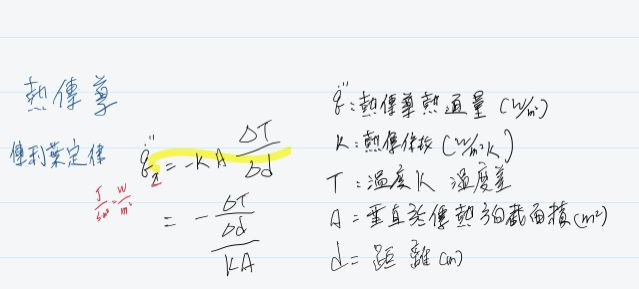 熱傳導
傅利葉定律 q̇''₂ = -KA ΔT/Δd
J/s·m² = W/m²
= - (ΔT/Δd)/(KA)
q̇'': 熱傳導熱通量 (W/m²)
K: 熱傳係數 (W/m²K)
T: 溫度K 溫度差
A = 垂直於傳熱方向截面積 (m²)
d = 距離 (m)